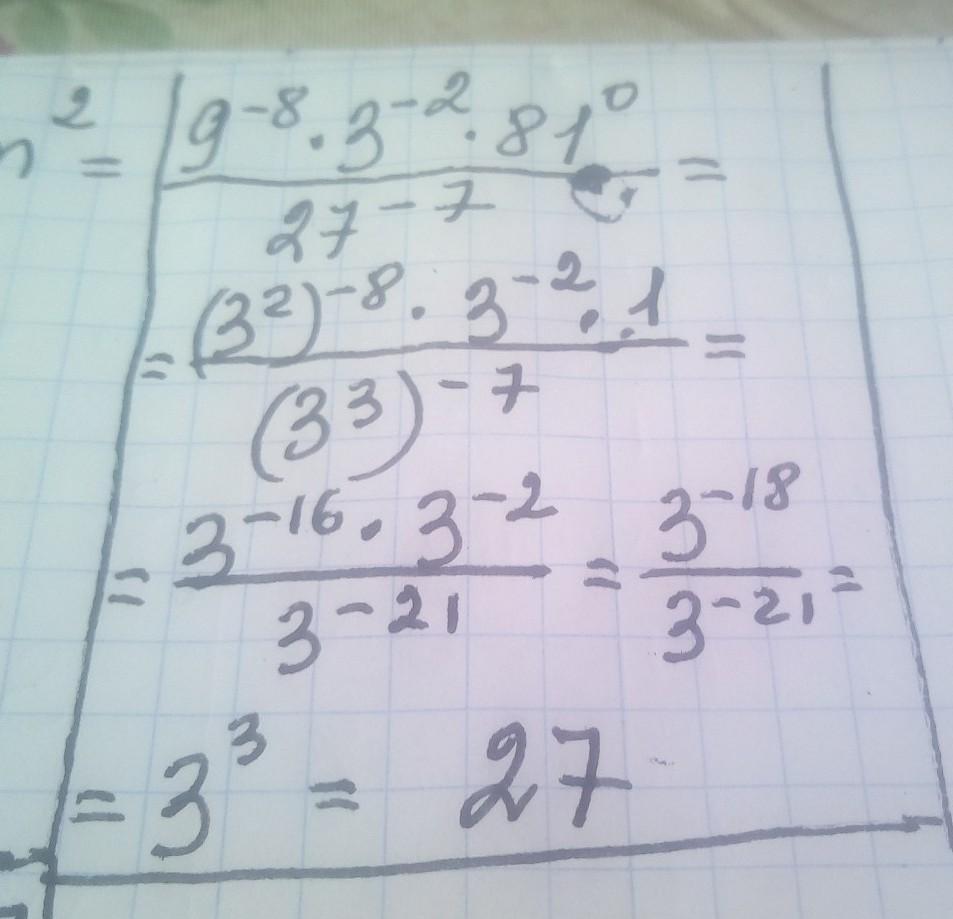 n² =
9⁻⁸ · 3⁻² · 81⁰ / 27⁻⁷ =
= (3²)⁻⁸ · 3⁻² · 1 / (3³)⁻⁷ =
= 3⁻¹⁶ · 3⁻² / 3⁻²¹ = 3⁻¹⁸ / 3⁻²¹ =
= 3³ = 27